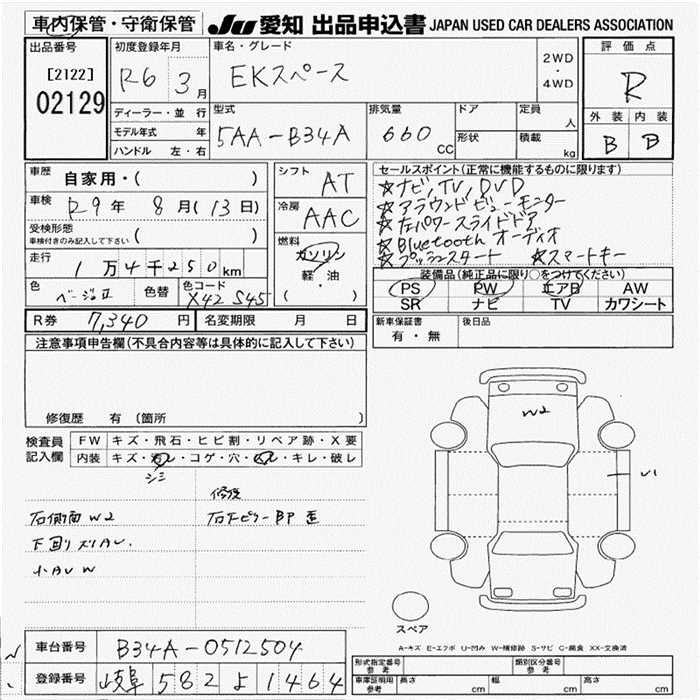 車内保管・守衛保管 JU 愛知 出品申込書 JAPAN USED CAR DEALERS ASSOCIATION
出品番号 初度登録年月 車名・グレード 評価点
[2122] R6 3月 EKスペース 2WD・4WD R
02129
ディーラー・並行 型式 排気量 ドア 定員 人 外装 内装
モデル年式 年 5AA-B34A 660 CC 形状 積載 kg B B
ハンドル 左・右
車歴 自家用・( ) シフト AT セールスポイント(正常に機能するものに限ります)
車検 R9年 8月(13日) 冷房 AAC ☆ナビ,TV,DVD
☆アラウンドビューモニター
受検形態 ( ) ☆左パワースライドドア
車検付きのみ記入して下さい 燃料 ガソリン ☆Bluetoothオーディオ
走行 1万4千250km 軽・油 ☆プッシュスタート ☆スマートキー
( )
色 ベージュⅡ 色替 色コード X42 S45 装備品(純正品に限り○をつけてください)
PS PW エアB AW
SR ナビ TV カワシート
R券 7,340円 名変期限 月 日 新車保証書 後日品
有・無
注意事項申告欄(不具合内容等は具体的に記入して下さい)
修復歴 有 (箇所 )
検査員 FW キズ・飛石・ヒビ割・リペア跡・X要
記入欄 内装 キズ・汚レ・コゲ・穴・スレ・キレ・破レ
シミ
修復
右側面 W2 右下ピラーBP 歪
下回りスリAU.
小AU W
W2
スペア
A-キズ E-エクボ U-凹み W-補修跡 S-サビ C-腐食 XX-交換済
車台番号 B34A-0512504
登録番号 岐阜 582 よ 1464
形式指定番号 参考 類別区分番号 参考
車庫証明用 参考 長さ cm 幅 cm 高さ cm